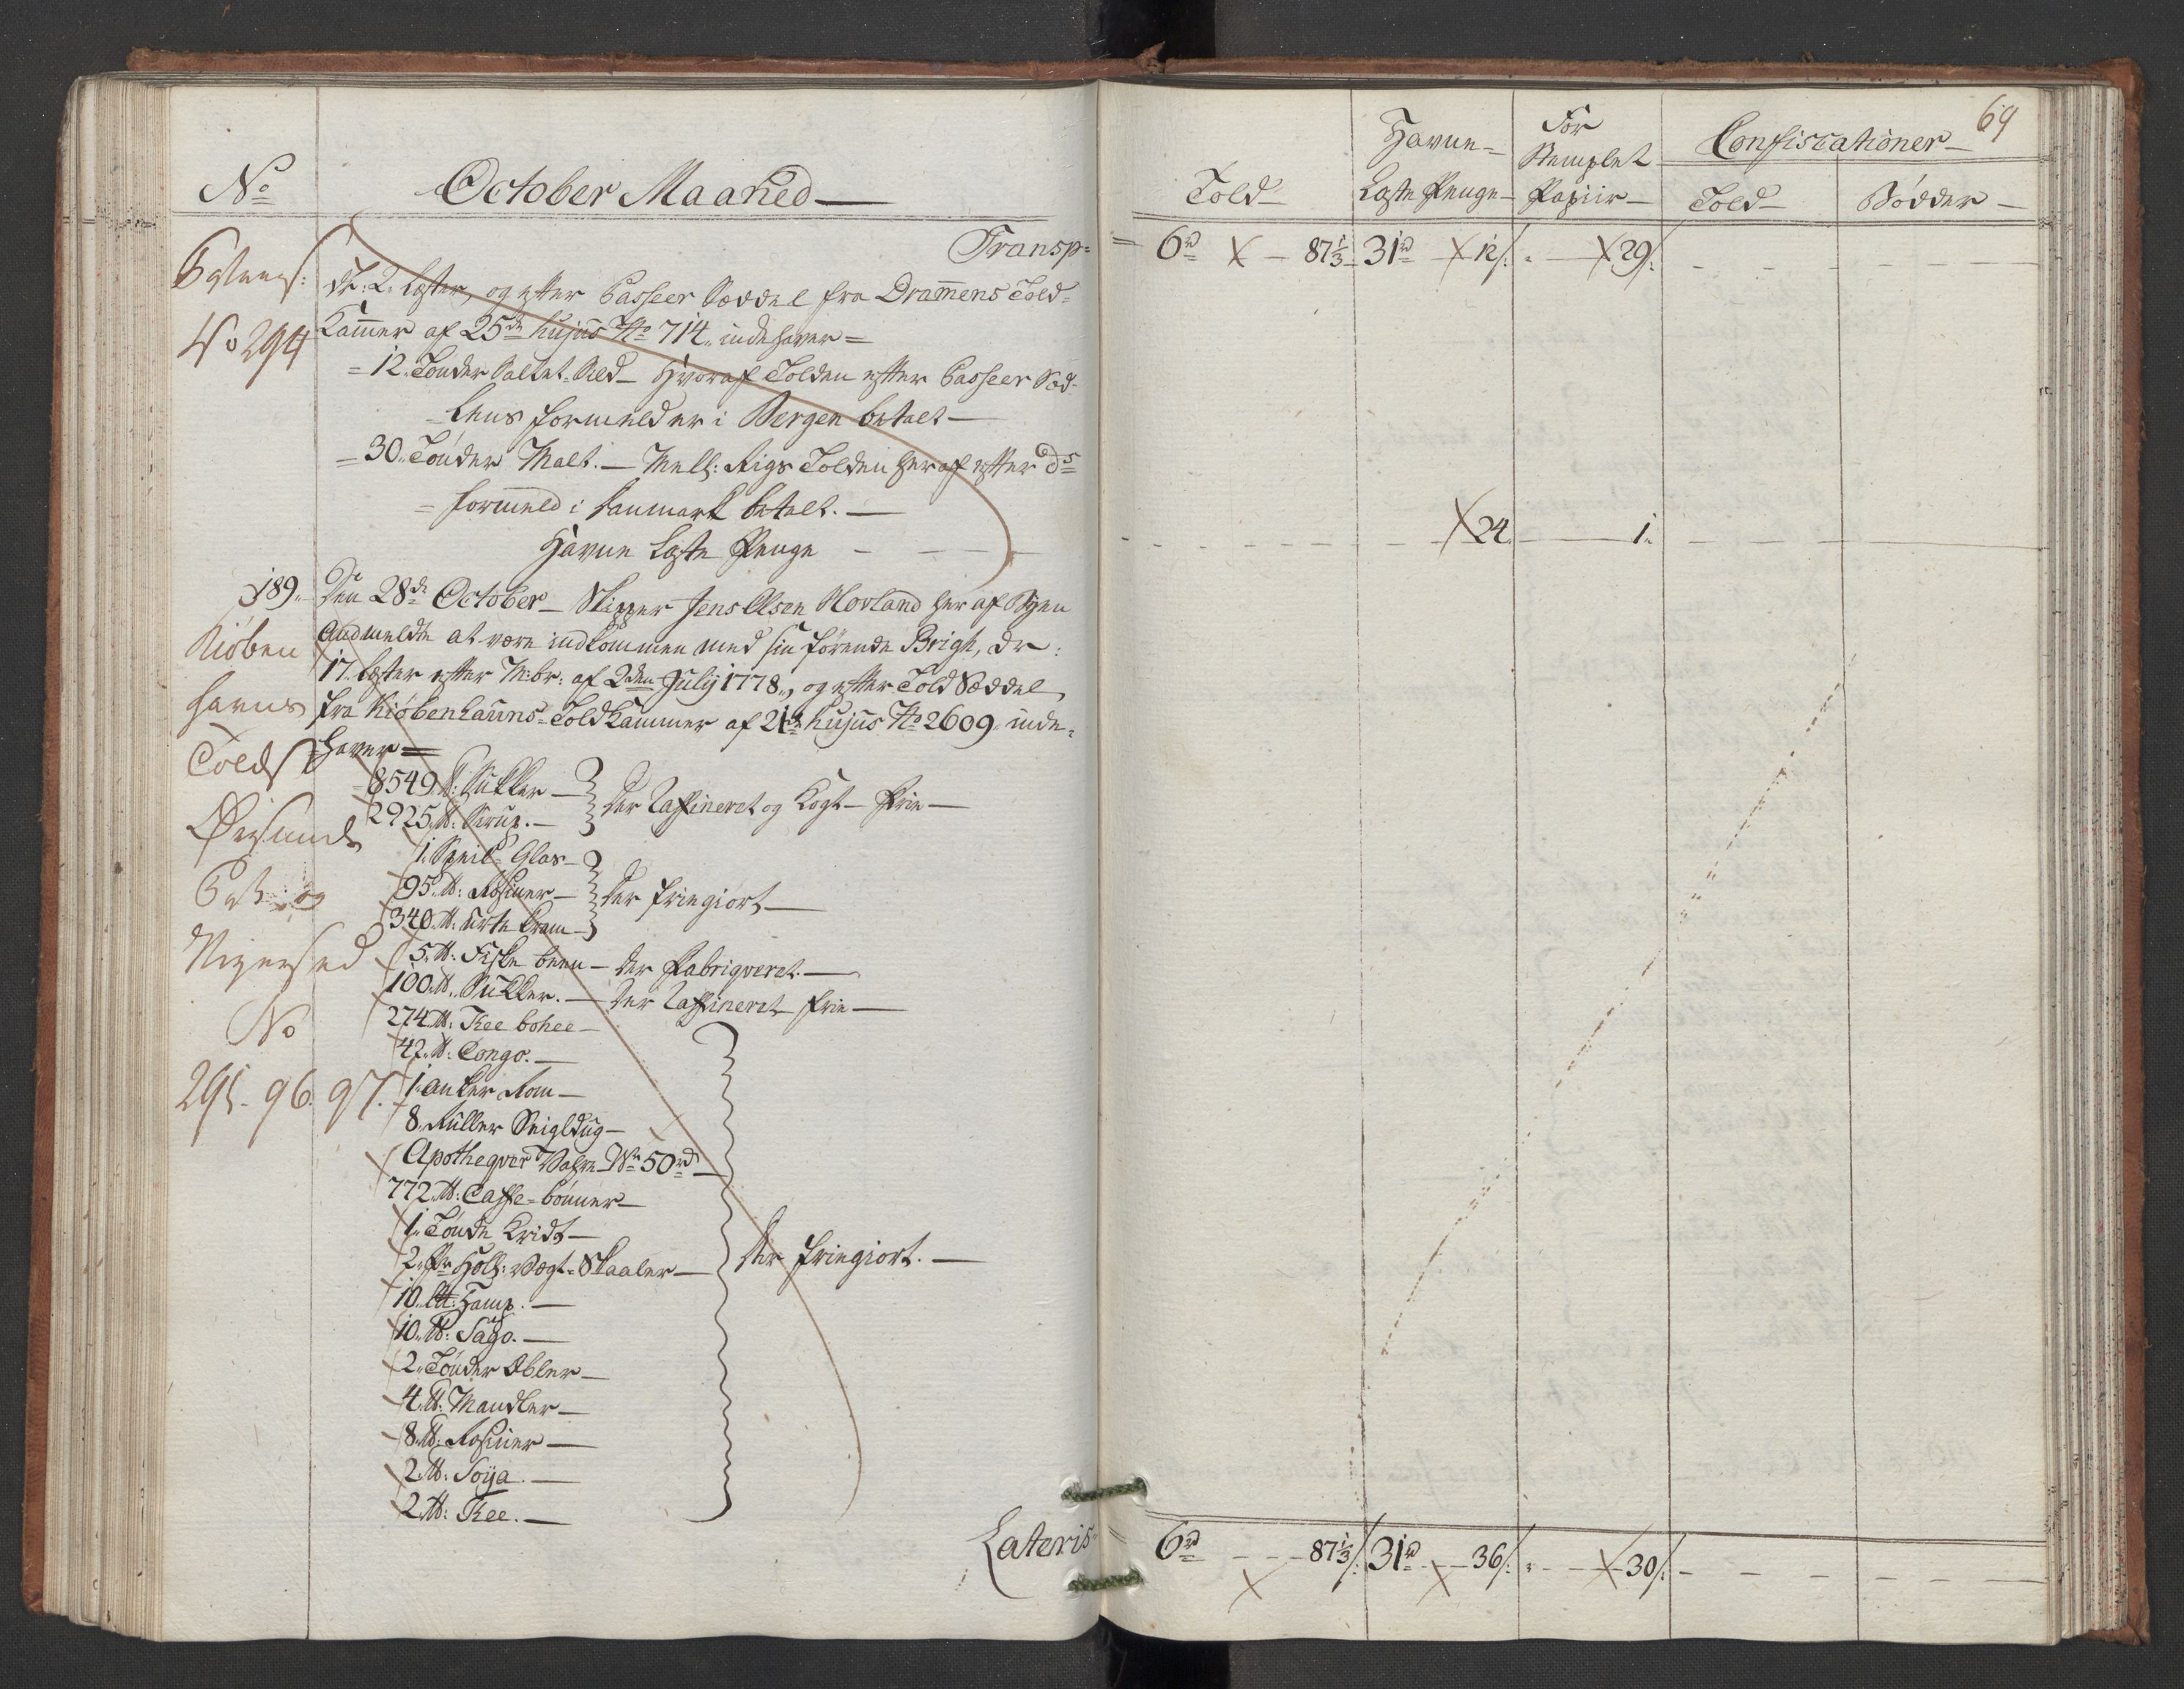 No
October Maaned
Transp
Dr: 2. Læster, og efter Passeer Sæddel fra Dramens Told-
Kamer af 25de hujus No 714. indehaver =
= 12. Tønder Saltet Sild - Hvoraf Tolden efter Passeer Sæd-
lens formelder i Bergen betalt -
= 30. Tønder Malt. - Mell: Rigs Tolden heraf efter Ds
formeld i Danmark betalt. -
Havne Læste Penge
No 294
189.
Den 28de October - Skipper Jens Olsen Hovland her af Byen
Andmeldte at være indkommen med sin førende Brigh, dr:
17. Læster efter M:br: af 2den Julij 1778., og efter Told Sæddel
fra Kiøbenhauns Told Kammer af 21de hujus No 2609 inde-
haver =
Kiøben
havns
Told S
Øresunds
Pas og
No
295. 96. 97.
8549 ℔: Sukker -
2925 ℔: Sirup. -
Der Raffineret og Kogt - frie -
1. Speil Glas -
95. ℔: Rosiner -
340. ℔: Urte Kram -
Der friegiort -
5. ℔: Fiske been - Der Fabriqveret. -
100. ℔. Sukker. - Der Raffineret frie -
274. ℔: Thee bohee -
42. ℔: Congo. -
1. Anker Rom -
8. Ruller Seigldug -
Apothequer Vahre Wr 50 rd
772. ℔: Caffe-bønner -
1. Tønde Kridt -
2. Pr Holl: Vægt-Skaaler -
10. Hamp. -
10. ℔: Sago. -
2. Tønder Æbler -
4. ℔: Mandler -
8. ℔: Rosiner -
2. ℔: Soija. -
2. ℔: Thee. -
Der friegiort. -
Lateris
69
Told
Havne-
Læste Penge
For
Stemplet
Papiir
Confiscationer
Told
Bødder
6rd 87⅓ 31rd 12 29
24 1.
6rd 87⅓ 31rd 36 30